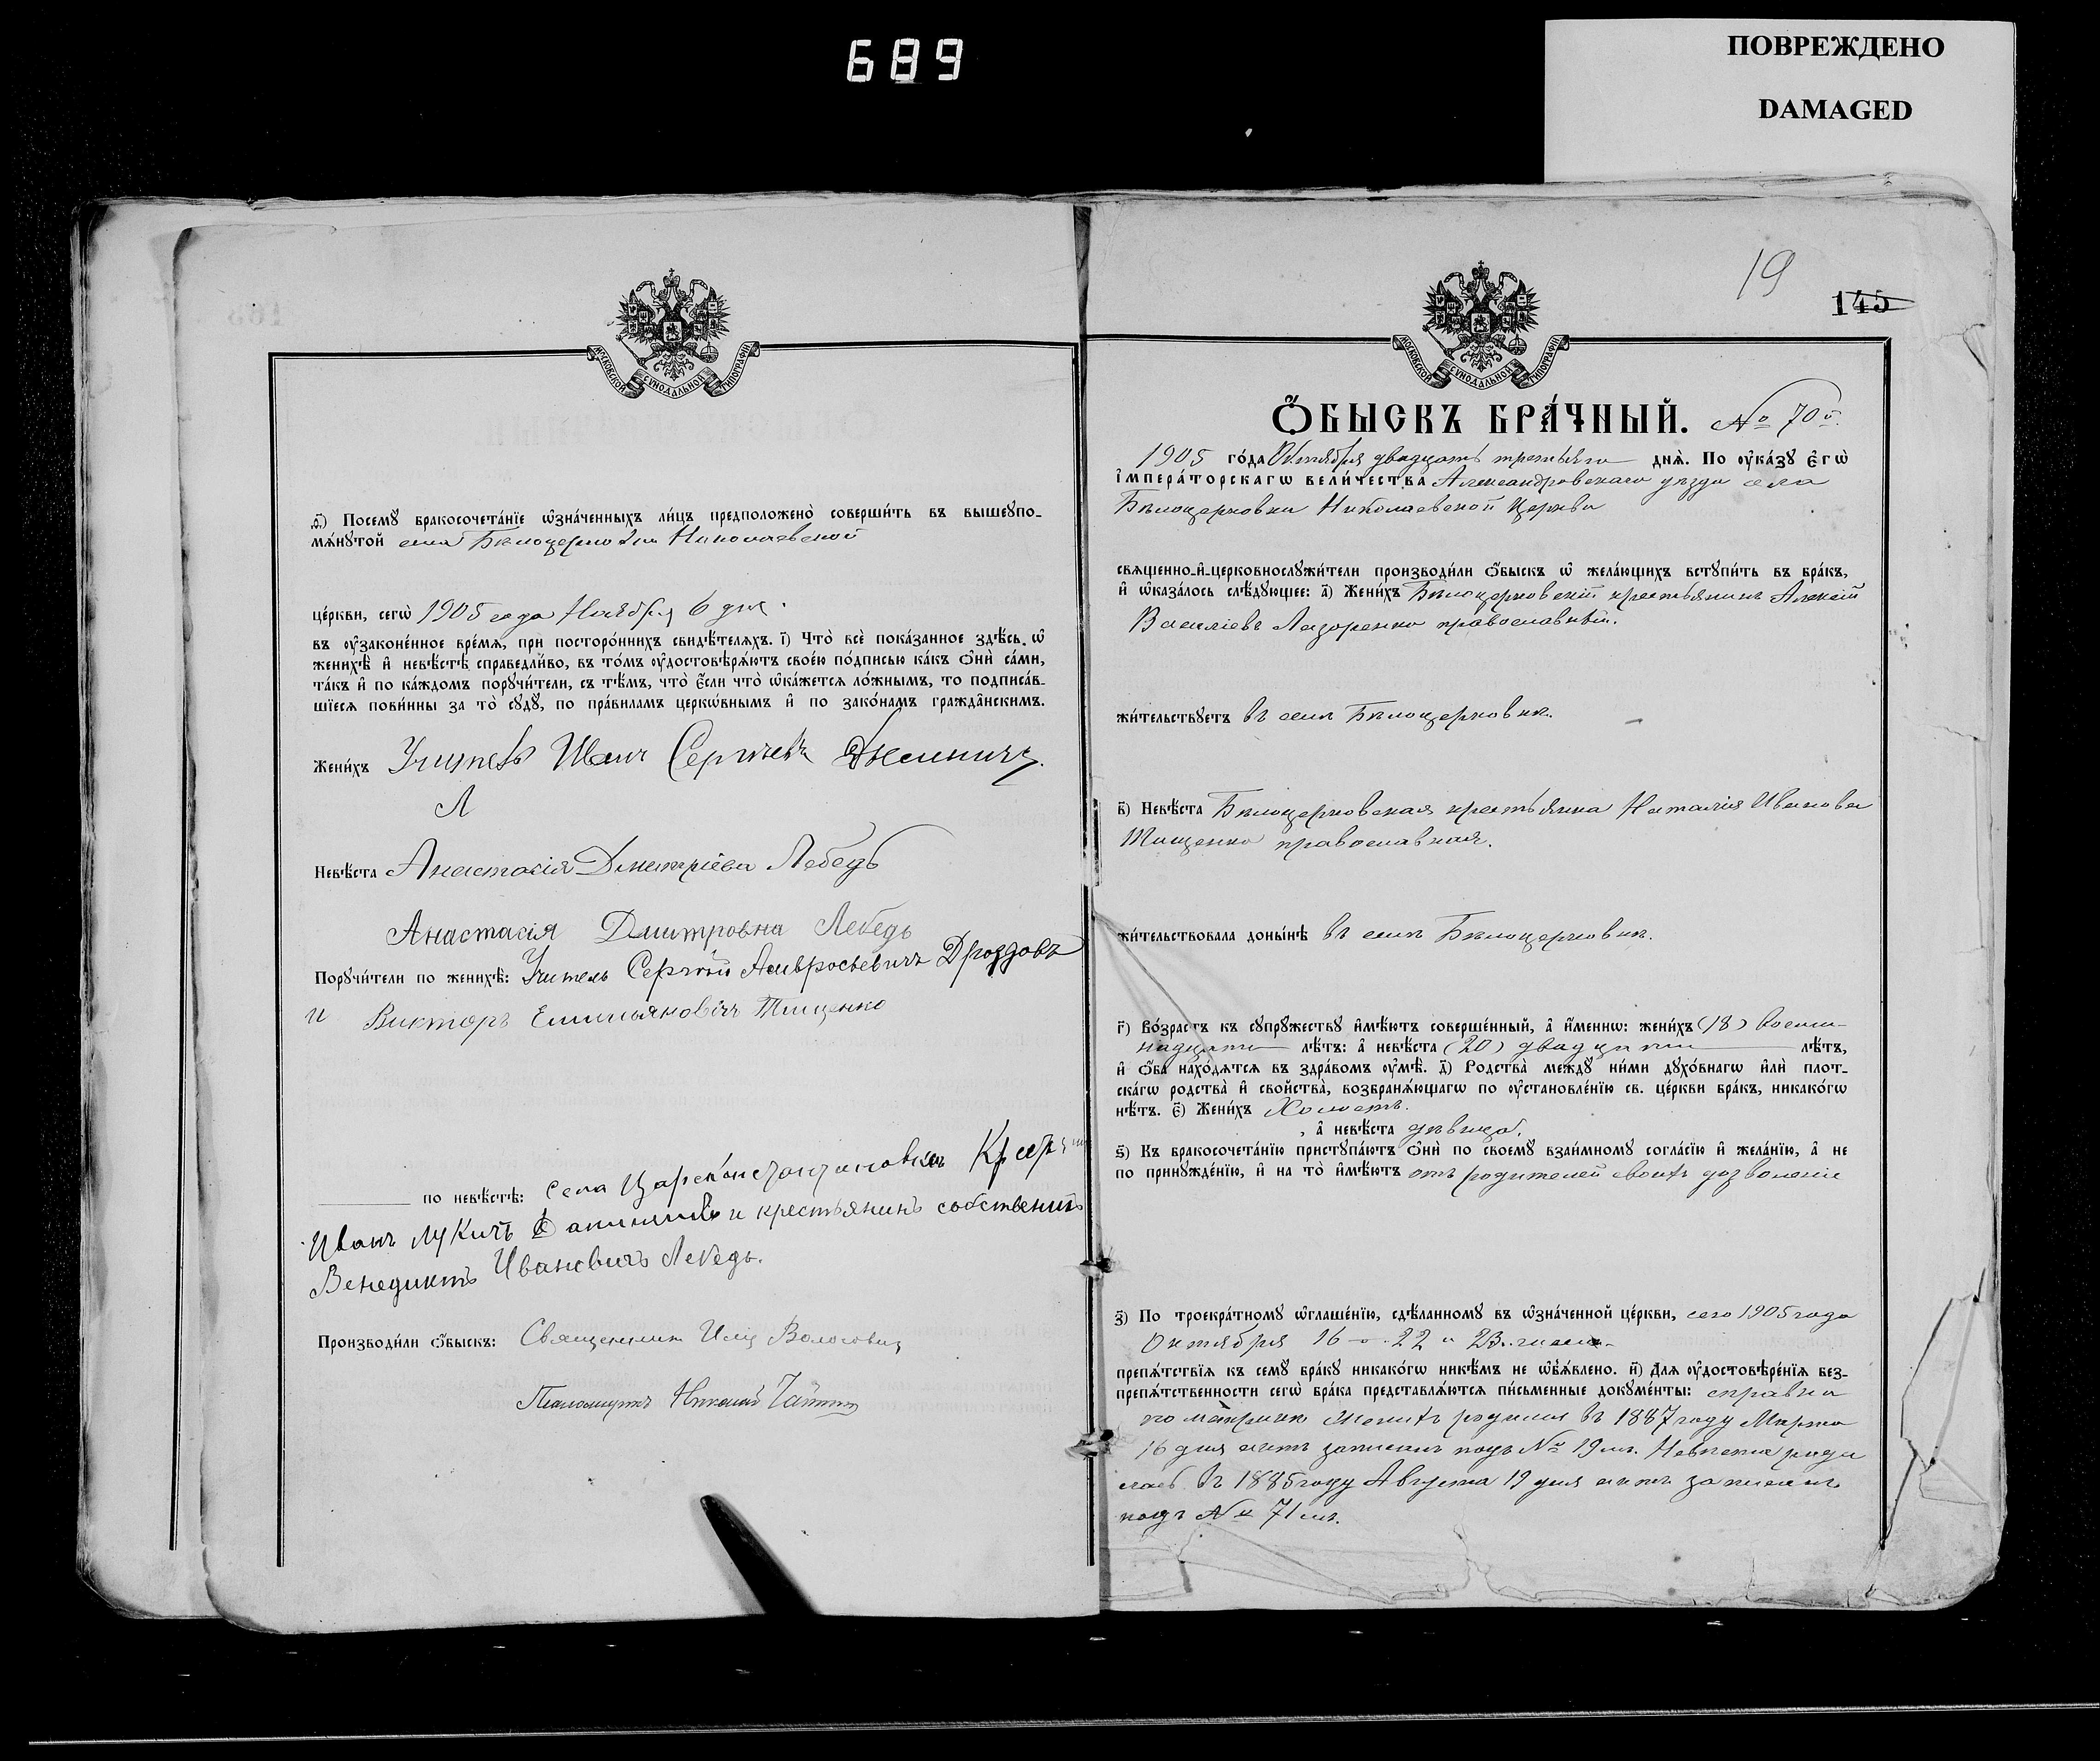 689
ПОВРЕЖДЕНО
DAMAGED
МОСКОВСКОЙ СѴНОДАЛЬНОЙ ТИПОГРАФІИ
ѳ҃) Посемꙋ̀ бракосочета́нїе ѡ҆зна́ченныхъ ли́цъ предположено̀ соверши́ть въ вышеꙋпо-
мѧ́нꙋтой села Бѣлоцерковки Николаевской
це́ркви, сегѡ̀ 1905 года Ноября 6 дня.
въ ᲂу҆зако́ненное вре́мѧ, при посторо́ннихъ свидѣ́телѧхъ. і҃) Что̀ всѐ пока́занное здѣ́сь ѡ҆
женихѣ̀ и҆ невѣ́стѣ справедли́во, въ то́мъ ᲂу҆достовѣрѧ́ютъ свое́ю по́дписью ка́къ ѻ҆нѝ са́ми,
та́къ и҆ по ка́ждомъ порꙋчи́тели, съ тѣ́мъ, что̀ є҆́сли что̀ ѡ҆ка́жетсѧ ло́жнымъ, то подписа́в-
шїесѧ пови́нны за то̀ сꙋдꙋ̀, по пра́виламъ церкѡ́внымъ и҆ по зако́намъ гражда̂нскимъ.
Жени́хъ Учитель Иванъ Сергѣевъ
Л
Невѣ́ста Анастасія Дмитріева Лебедь
Анастасія Дмитровна Лебедь
Порꙋчи́тели по женихѣ̀: Учитель Сергѣй Амвросьевичъ Дроздовъ
и Викторъ Емильяновичъ Тищенко
по невѣ́стѣ: села Царе́константиновки
Иванъ Лукичъ и крестьянинъ собственникъ
Венедиктъ Ивановичъ Лебедь.
Производи́ли ѻ҆́быскъ: Священникъ Илія Волосовичъ
Псаломщикъ Николай
19
145
МОСКОВСКОЙ СѴНОДАЛЬНОЙ ТИПОГРАФІИ
Ѻ҆́БЫСКЪ БРА́ЧНЫЙ. № 70й.
1905 го́да Октября двадцать третьяго днѧ̀. По ᲂу҆ка́зꙋ є҆гѡ̀
і҆мпера́торскагѡ вели́чества Александровскаго уѣзда села
Бѣлоцерковки Николаевской Церкви
свѧщенно-и҆-церковнослꙋжи́тели производи́ли ѻ҆́быскъ ѡ҆ жела́ющихъ встꙋпи́ть въ бра́къ,
и҆ ѡ҆каза́лось слѣ́дꙋющее: а҃) Жени́хъ Бѣлоцерковскій крестьянинъ Алексій
Василіевъ Лазоренко православный.
жи́тельствꙋетъ въ селѣ Бѣлоцерковкѣ.
в҃) Невѣ́ста Бѣлоцерковская крестьянка Наталія Иванова
Тищенко православная.
жи́тельствовала доны́нѣ въ селѣ Бѣлоцерковкѣ.
г҃) Во́зрастъ къ сꙋпрꙋ́жествꙋ и҆мѣ́ютъ соверше́нный, а҆ и҆́меннѡ: жени́хъ (18) восем-
надцати лѣ́тъ: а҆ невѣ́ста (20) двадцати лѣ́тъ,
и҆ ѻ҆́ба нахо́дѧтсѧ въ здра́вомъ ᲂу҆мѣ̀. д҃) Родства̀ междꙋ̀ ни́ми дꙋхо́внагѡ и҆лѝ плот-
ска́гѡ родства̀ и҆ свойства̀, возбранѧ́ющагѡ по ᲂу҆становле́нїю св. це́ркви бра́къ, никако́гѡ
нѣ́тъ. є҃) Жени́хъ Холостъ.
, а҆ невѣ́ста дѣвица.
ѕ҃) Къ бракосочета́нїю пристꙋпа́ютъ ѻ҆нѝ по своемꙋ̀ взаи́мномꙋ согла́сїю и҆ жела́нїю, а҆ не
по принꙋжде́нїю, и҆ на то̀ и҆мѣ́ютъ отъ родителей своихъ дозволеніе
з҃) По троекра́тномꙋ ѡ҆глаше́нїю, сдѣ́ланномꙋ въ ѡ҆зна́ченной це́ркви, сего 1905 года
Октября 16 - 22 и 23. числа
препѧ́тствїѧ къ семꙋ̀ бра́кꙋ никако́гѡ никѣ́мъ не ѡ҆б̾ѧ́влено. и҃) Длѧ ᲂу҆достовѣре́нїѧ без-
препѧ́тственности сегѡ̀ бра́ка представлѧ́ютсѧ пи́сьменные докꙋме́нты: справка
по метрикѣ Женихъ родился въ 1887 году Марта
16 дня актъ записанъ подъ № 19мъ. Невѣста роди
лась въ 1885 году Августа 19 дня актъ записанъ
подъ № 71мъ.